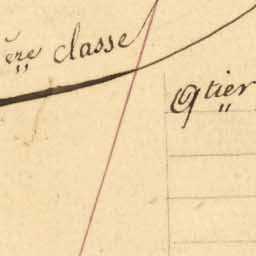 ère classe
Qtier